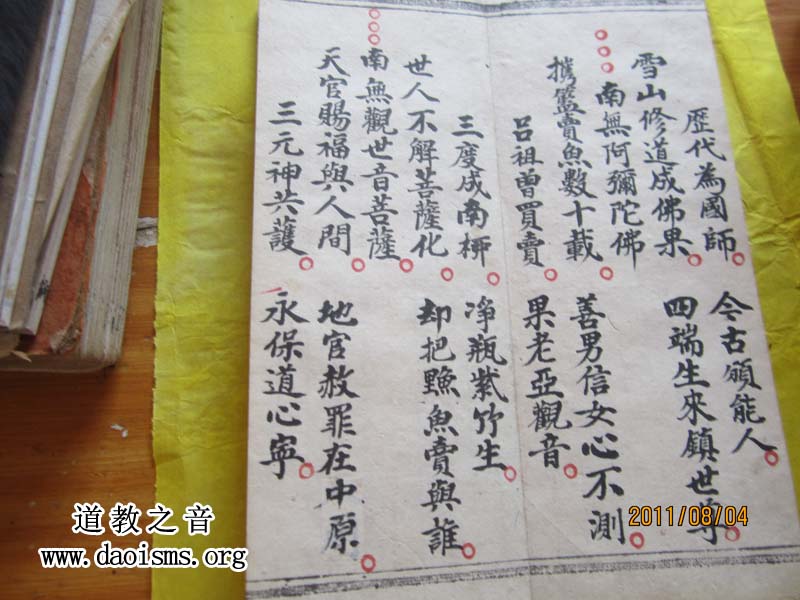 歷代為國師。 今古願能人。
雪山修道成佛果。 四端生來鎮世尊
南無阿彌陀佛。
攜籃賣魚數十載 善男信女心不測。
呂祖曾買賣。 果老亞觀音。
三度成南。 净瓶紫竹生。
世人不解菩薩化。 却把魚賣與誰。
南無觀世音菩薩。
天官賜福與人間。 地官赦罪在中原。
三元神共護。 永保道心寧。
2011/08/04
道教之音
www.daoisms.org